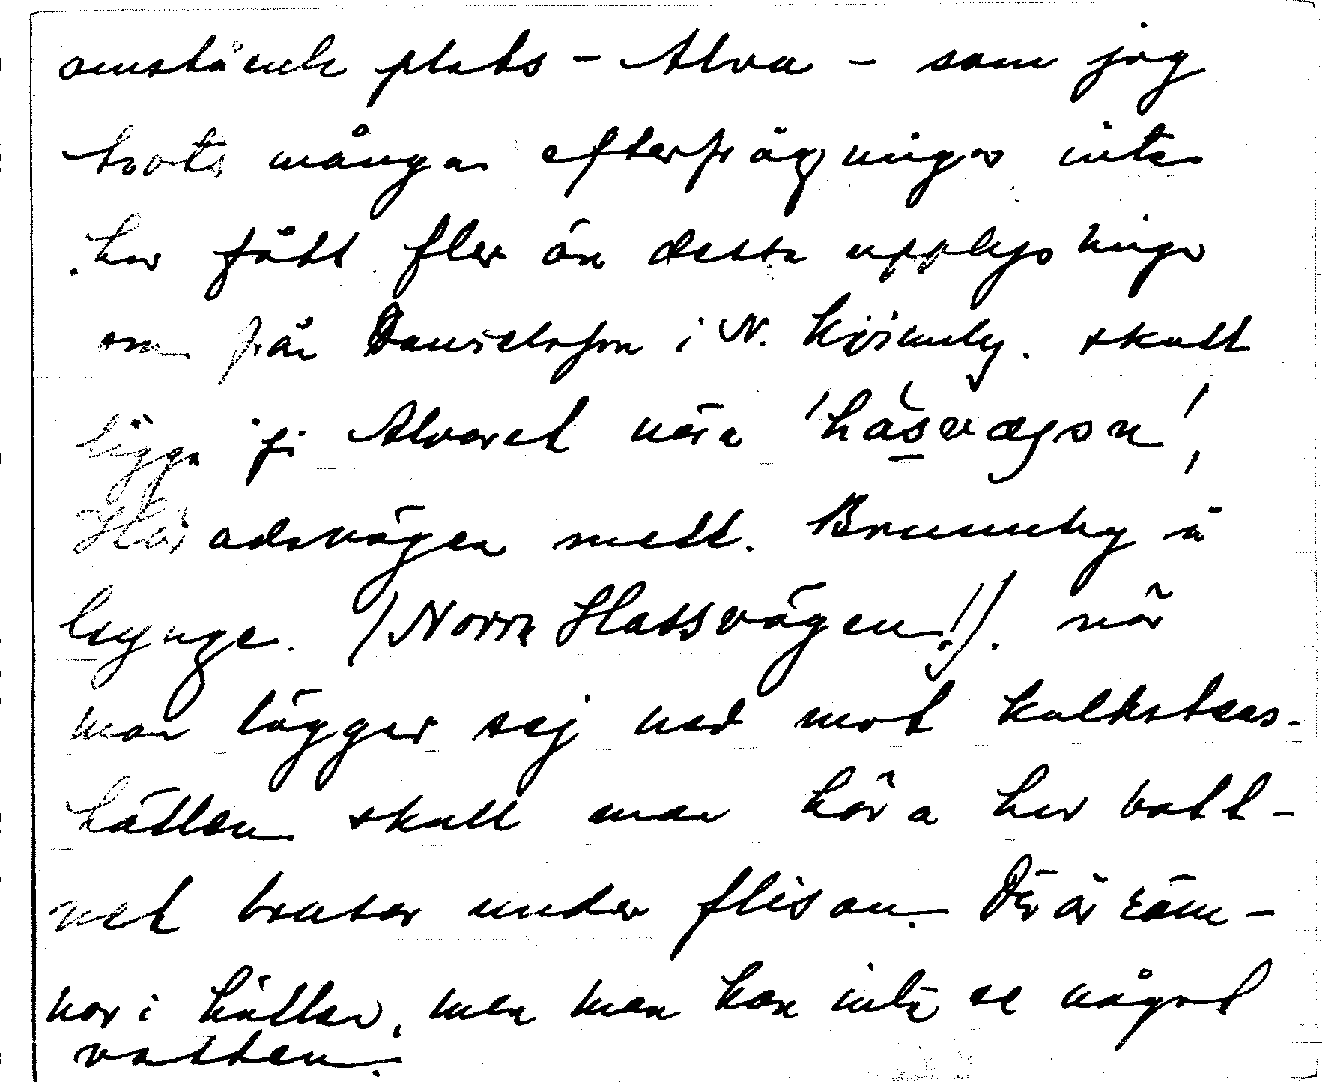 omstånde plats - Alva - som jag
trots många efterfrågningar inte
har fått fler än detta upplysningar
om från Danielsson i N. Kvinneby. skall
ligga på Alvaret nära 'håsvægen',
Häradsvägen mell. Brunneby å
hynge. (Norra Hassvägen!). när
man lägger sej ned mot kalkstens-
hällen skall man höra hur vatt-
net brusar under flisan. Där är räm-
nor i hällen, men man kan inte se något
vatten.